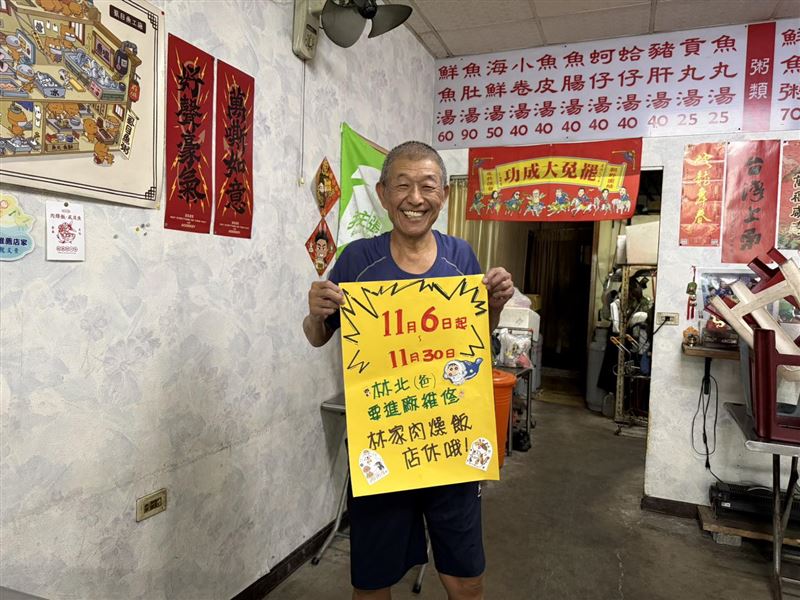 好聲豪氣
萬斯如意
鮮魚湯 60
魚肚湯 90
海鮮湯 50
小卷湯 40
魚皮湯 40
魚腸湯 40
蚵仔湯 40
蛤仔湯 40
豬肝湯 40
貢丸湯 25
魚丸湯 25
粥類
罷免大成功
台灣上
11月6日起
~
11月30日
林北(爸)
要進廠維修
林家肉燥飯
店休哦!